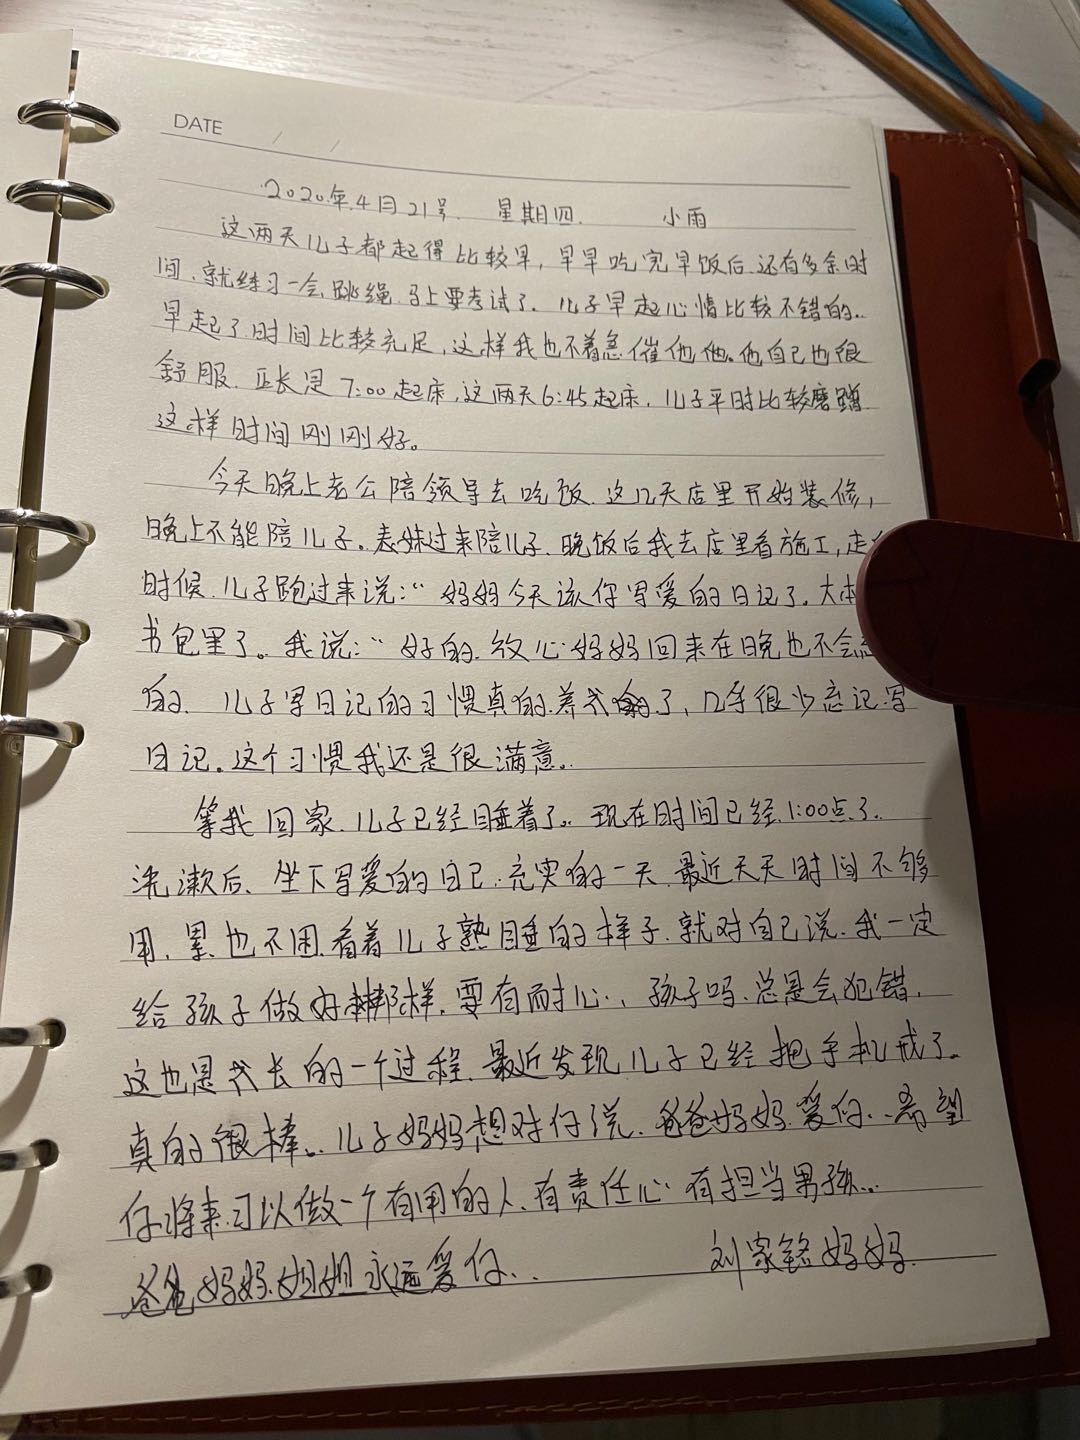 DATE / /
2020年.4月21号. 星期四. 小雨
这两天儿子都起得比较早,早早吃完早饭后.还有多余时
间.就练习一会跳绳.马上要考试了.儿子早起心情比较不错的..
早起了.时间比较充足,这样我也不着急催他他。他自己也很
舒服.正长是7:00起床,这两天6:45起床,儿子平时比较磨蹭.
这样时间刚刚好。
今天晚上老公陪领导去吃饭.这几天店里开始装修,
晚上不能陪儿子。表妹过来陪儿子.晚饭后我去店里看施工,走
时候.儿子跑过来说:“妈妈今天该你写爱的日记了。大
书包里了。我说:“好的.放心妈妈回来在晚也不会
的.儿子写日记的习惯真的养成了,几乎很少忘记.写
日记。这个习惯我还是很满意..
等我回家.儿子已经睡着了..现在时间已经.1:00点了..
洗漱后、坐下写爱的日己.充实的一天.最近天天时间不够
用,累.也不困.看着儿子熟睡的样子.就对自己说.我一定
给孩子做好榜样.要有耐心..孩子吗.总是会犯错.
这也是成长的一个过程.最近发现儿子已经把手机戒了.
真的很棒..儿子妈妈想对你说.爸爸妈妈.爱你..希望
你将来可以做一个有用的人.有责任心有担当男孩...
爸爸.妈妈.姐姐永远爱你.. 刘家铭妈妈.